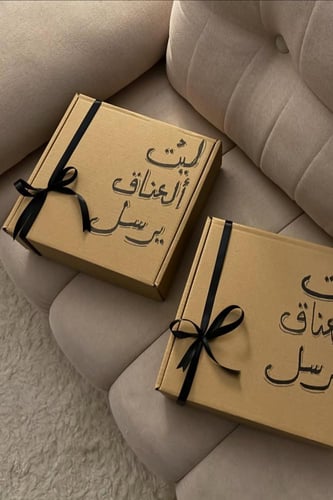 ليت
ألعناق
يرسل
ت
عناق
رسل